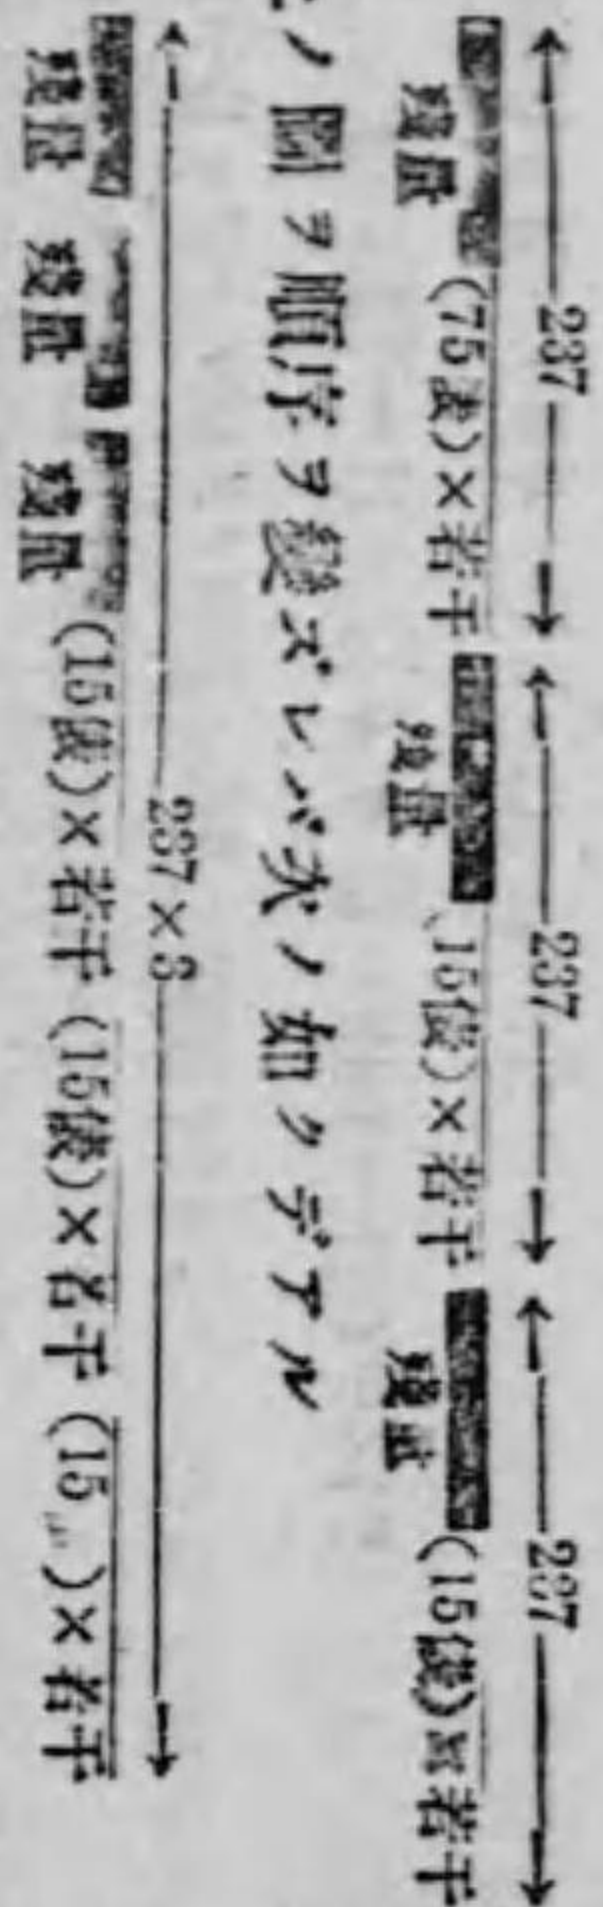 237 237 237
殘皿 (75錢)×若干 殘皿 15錢)×若干 殘皿 (15錢)×若干
ノ圖ヲ順序ヲ變ズレバ次ノ如クデアル
237×3
殘皿 殘皿 殘皿 (15錢)×若干 (15錢)×若干 (15 )×若干